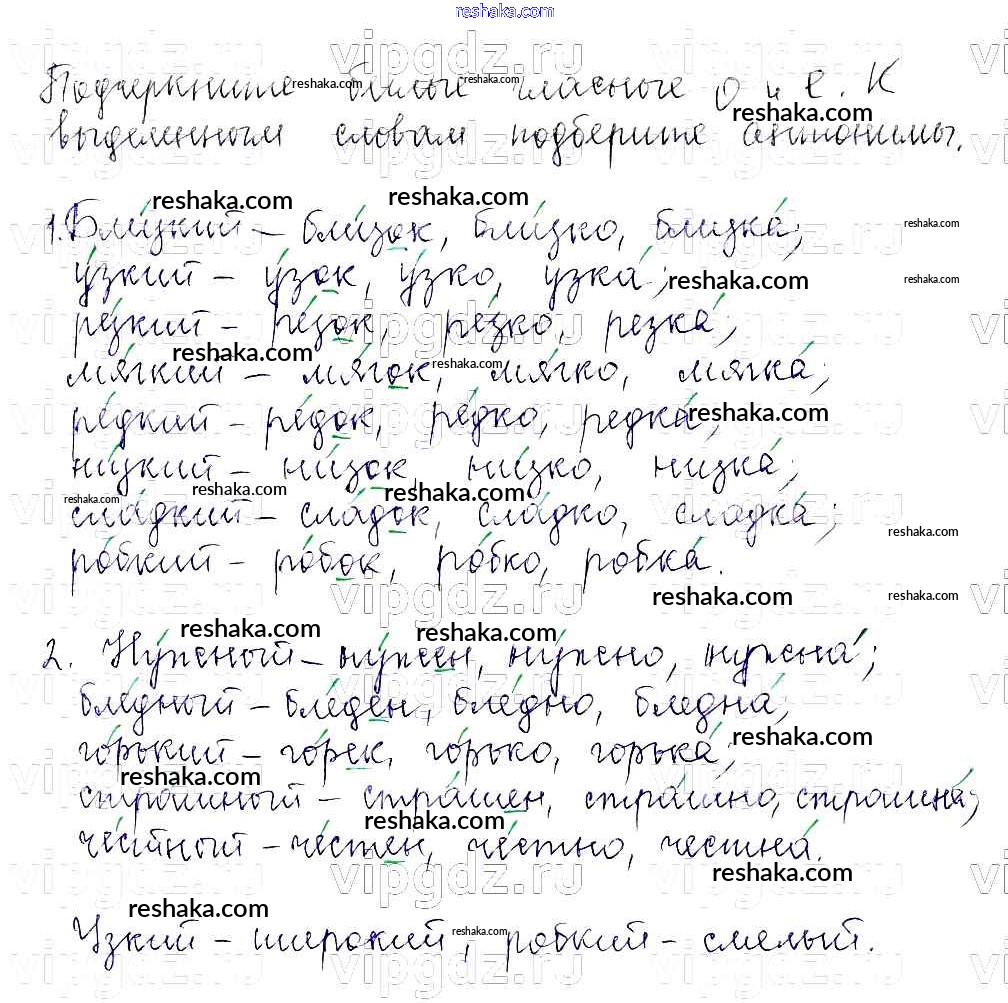 reshaka.com
Подчеркните беглые гласные о и е. К
выделенным словам подберите антонимы.
1. Бли́зкий – бли́зок, бли́зко, близка́;
у́зкий – у́зок, у́зко, узка́;
ре́зкий – ре́зок, ре́зко, резка́;
мя́гкий – мя́гок, мя́гко, мягка́;
ре́дкий – ре́док, ре́дко, редка́;
ни́зкий – ни́зок, ни́зко, низка́;
сла́дкий – сла́док, сла́дко, сладка́;
ро́бкий – ро́бок, ро́бко, робка́.
2. Ну́жный – ну́жен, ну́жно, нужна́;
бле́дный – бле́ден, бле́дно, бледна́;
го́рький – го́рек, го́рько, горька́;
стра́шный – стра́шен, стра́шно, страшна́;
че́стный – че́стен, че́стно, честна́.
Узкий – широкий, робкий – смелый.